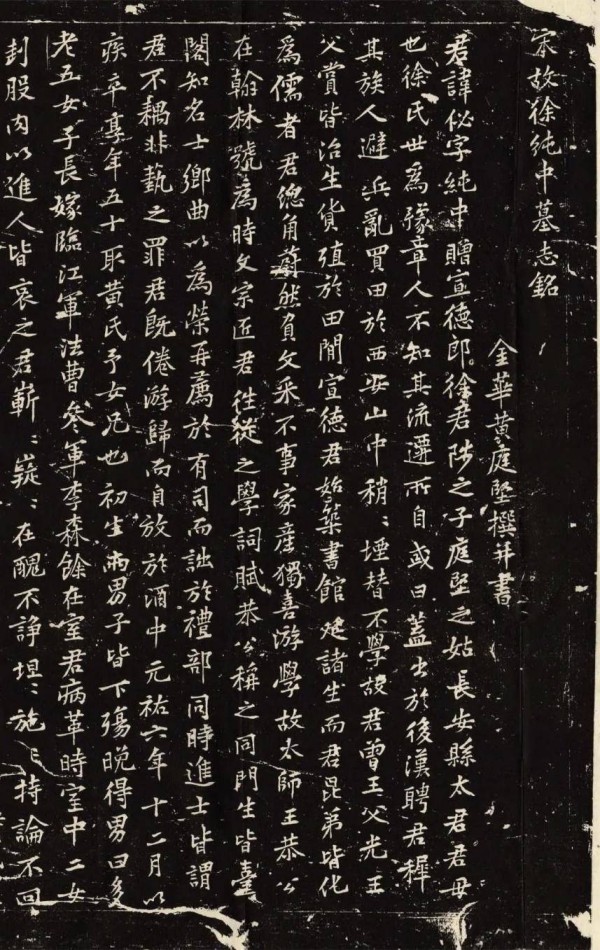 宋故徐純中墓志銘
金華黃庭堅撰并書
君諱佖字純中贈宣德郎徐君陟之子庭堅之姑長安縣太君君母
也徐氏世為豫章人不知其流遷所自或曰蓋出於後漢聘君穉
其族人避兵亂買田於西安山中稍〻堙替不學故君曾王父光王
父賞皆治生貨殖於田閒宣德君始築書館延諸生而君昆弟皆化
為儒者君緫角蔚然有文采不事家產獨喜游學故太師王恭公
在翰林號為時文宗匠君往從之學詞賦恭公稱之同門生皆臺
閣知名士鄉曲以為榮再薦於有司而詘於禮部同時進士皆謂
君不耦非藝之罪君既倦游歸而自放於酒中元祐六年十二月以
疾卒享年五十取黃氏予女兄也初生兩男子皆下殤晚得男曰多
老五女子長嫁臨江軍法曹參軍李森餘在室君病革時室中二女
刲股肉以進人皆哀之君嶄〻嶷〻在醜不諍坦〻施〻持論不回